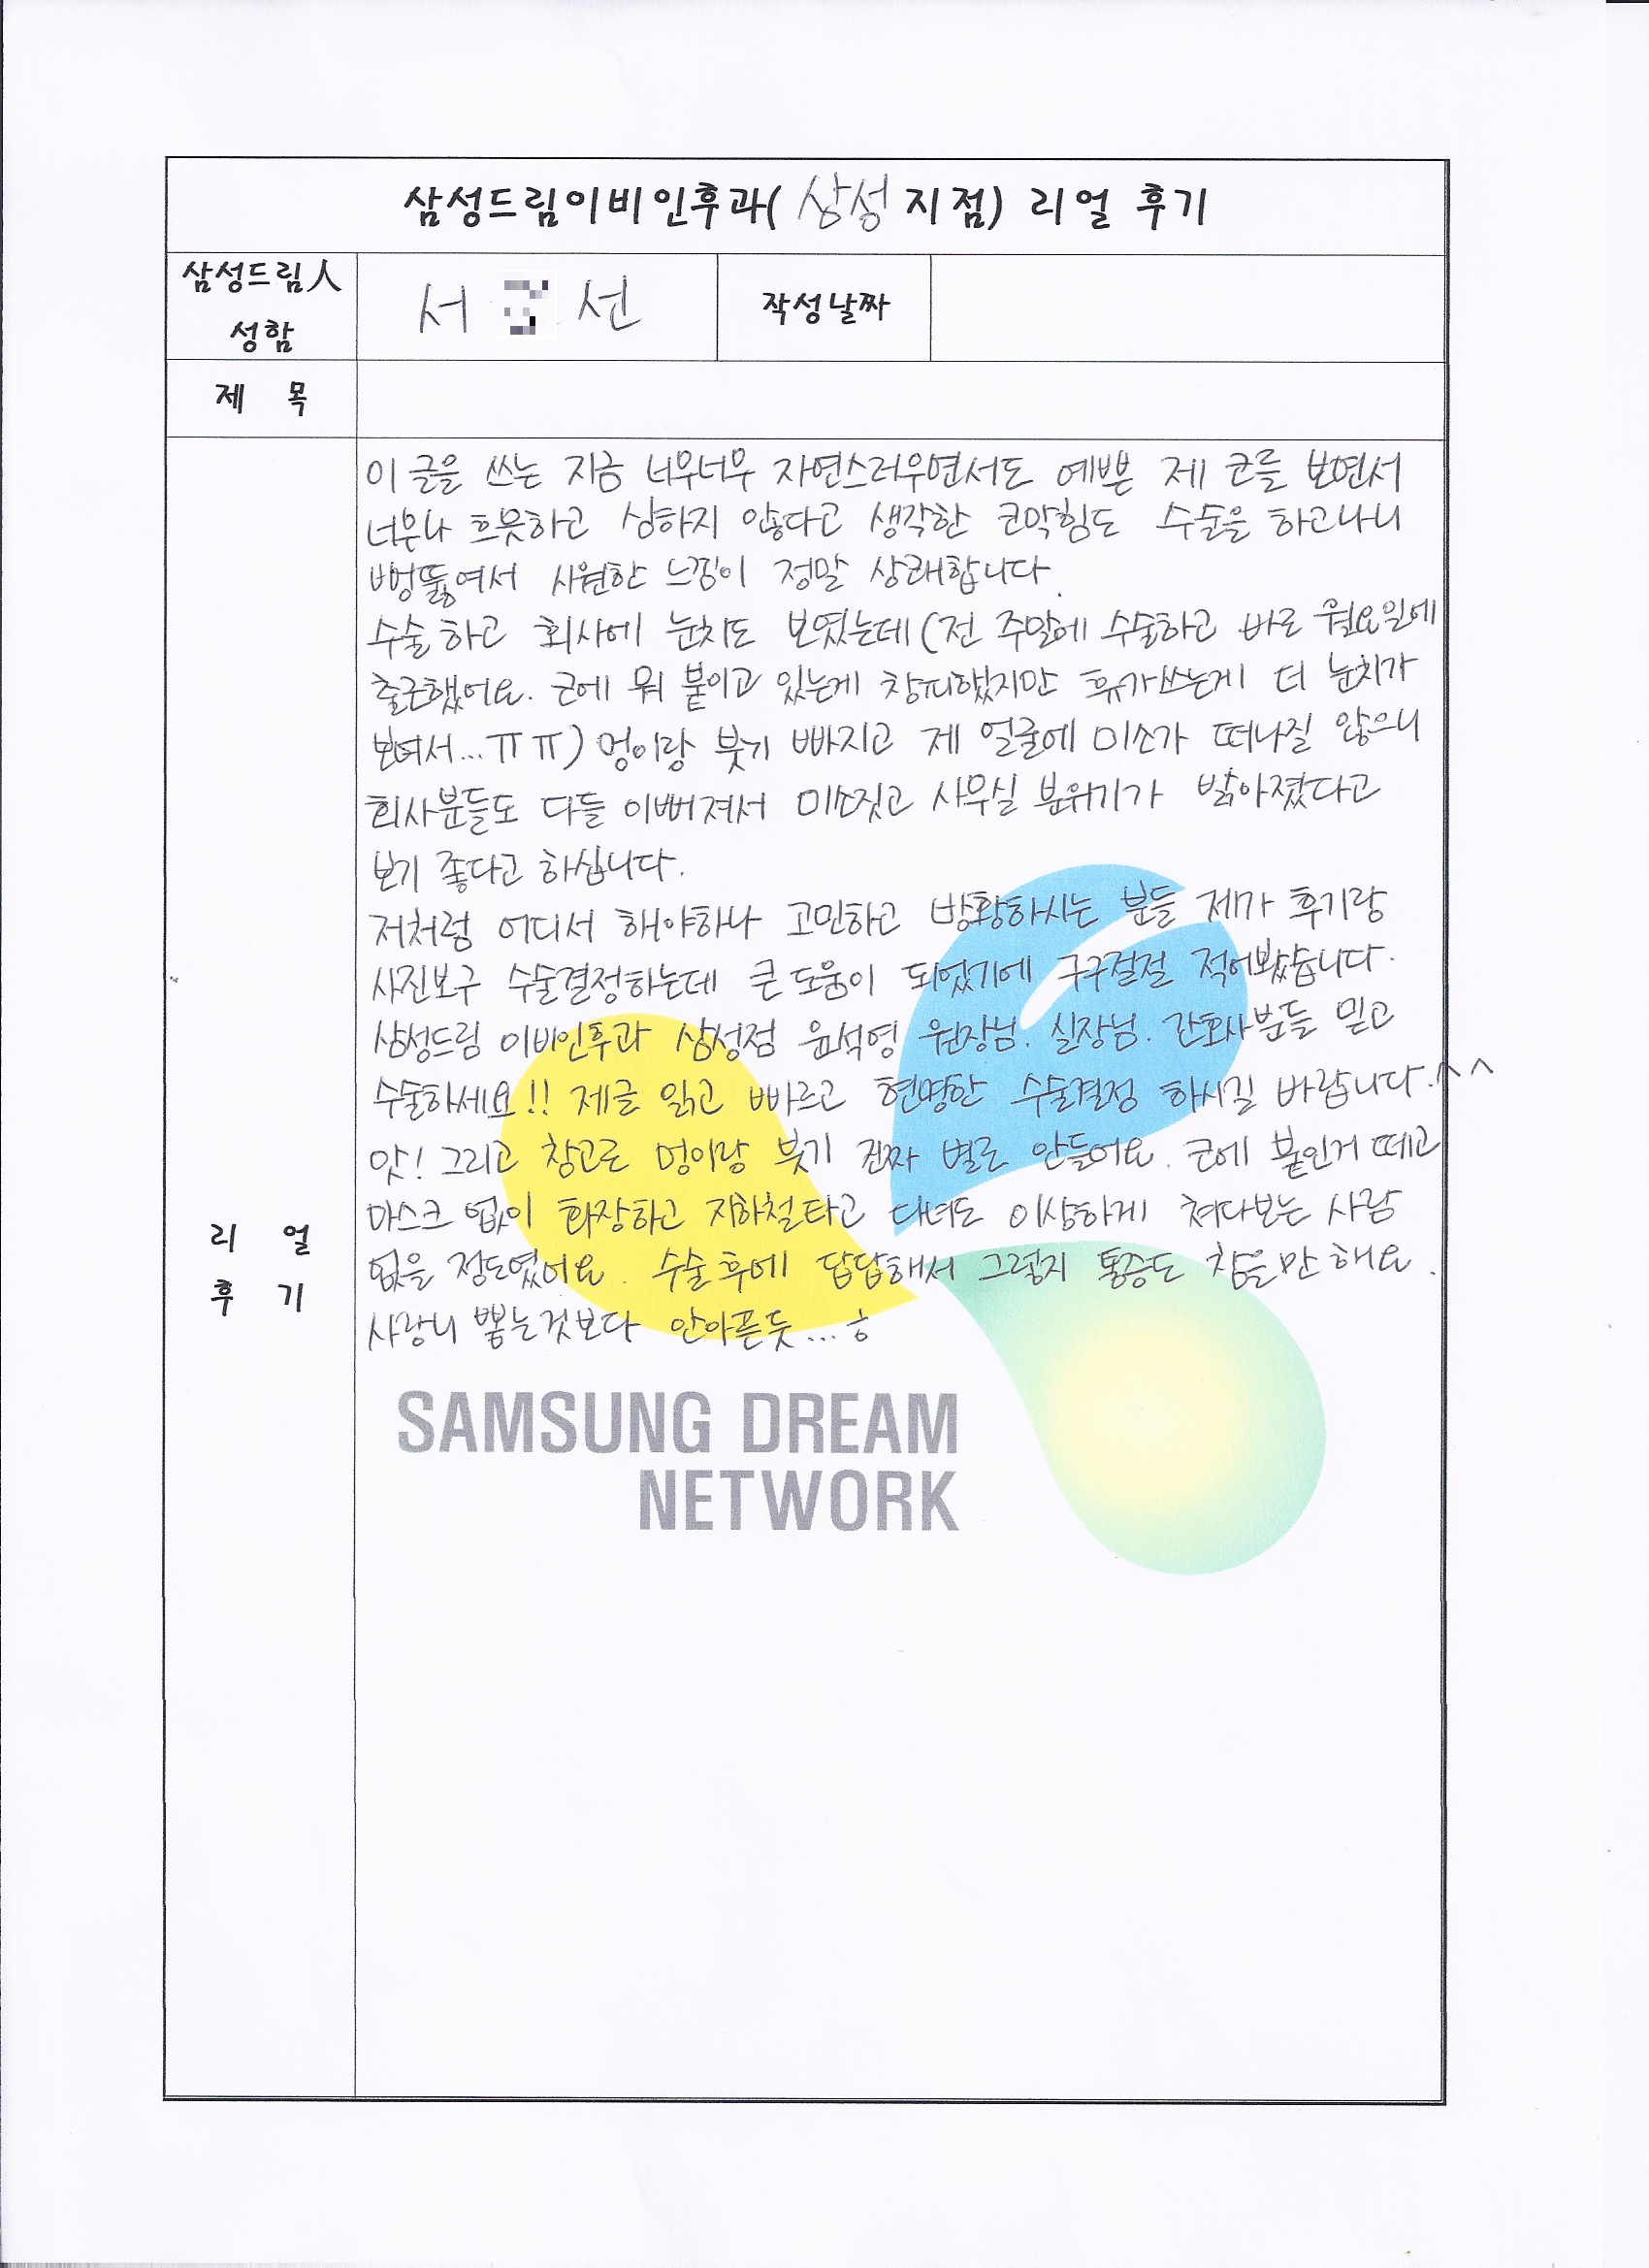 삼성드림이비인후과(삼성지점) 리얼 후기
삼성드림人
성함
서 선
작성날짜
제 목
이 글을 쓰는 지금 너무너무 자연스러우면서도 예쁜 제 코를 보면서
너무나 흐뭇하고 심하지 않다고 생각한 코막힘도 수술을 하고나니
뻥뚫여서 시원한 느낌이 정말 상쾌합니다.
수술하고 회사에 눈치도 보였는데(전 주말에 수술하고 바로 월요일에
출근했어요. 코에 뭐 붙이고 있는게 창피했지만 휴가쓰는게 더 눈치가
보여서...ㅠㅠ) 멍이랑 붓기 빠지고 제 얼굴에 미소가 떠나질 않으니
회사분들도 다들 이뻐져서 미소짓고 사무실 분위기가 밝아졌다고
보기 좋다고 하십니다.
저처럼 어디서 해야하나 고민하고 방황하시는 분들 제가 후기랑
사진보구 수술결정하는데 큰 도움이 되었기에 구구절절 적어봤습니다.
삼성드림 이비인후과 삼성점 윤석영 원장님. 실장님. 간호사분들 믿고
수술하세요!! 제글 읽고 빠르고 현명한 수술결정 하시길 바랍니다.^^
앗! 그리고 참고로 멍이랑 붓기 진짜 별로 안들어요. 코에 붙인거 떼고
마스크 없이 화장하고 지하철타고 다녀도 이상하게 쳐다보는 사람
없을 정도였어요. 수술후에 답답해서 그렇지 통증도 참을만 해요.
사랑니 뽑는것보다 안아픈듯...ㅎ
리 얼
후 기
SAMSUNG DREAM
NETWORK